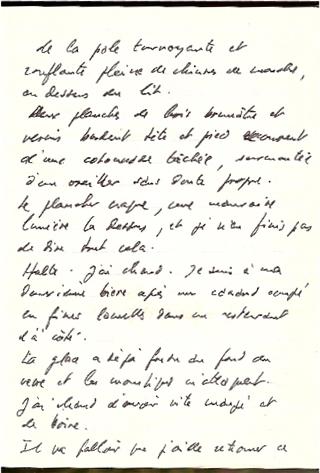 de la pale tournoyante et
ronflante pleine de chiures de mouche,
au dessus du lit.
Deux planches de bois brunâtre et
vernis bordent tête et pied
d'une cotonnade tachée, surmontée
d'un oreiller sans doute propre.
Le plancher craque, une mauvaise
lumière là dessus, et je n'en finis pas
de dire tout cela.
Halte. J'ai chaud. Je suis à ma
deuxième bière après un canard coupé
en fines lamelles dans un restaurant
d'à côté.
La glace a déjà fondu au fond du
verre et les moustiques m'attaquent.
J'ai chaud d'avoir vite mangé et
de boire.
Il va falloir que j'aille retrouver ce